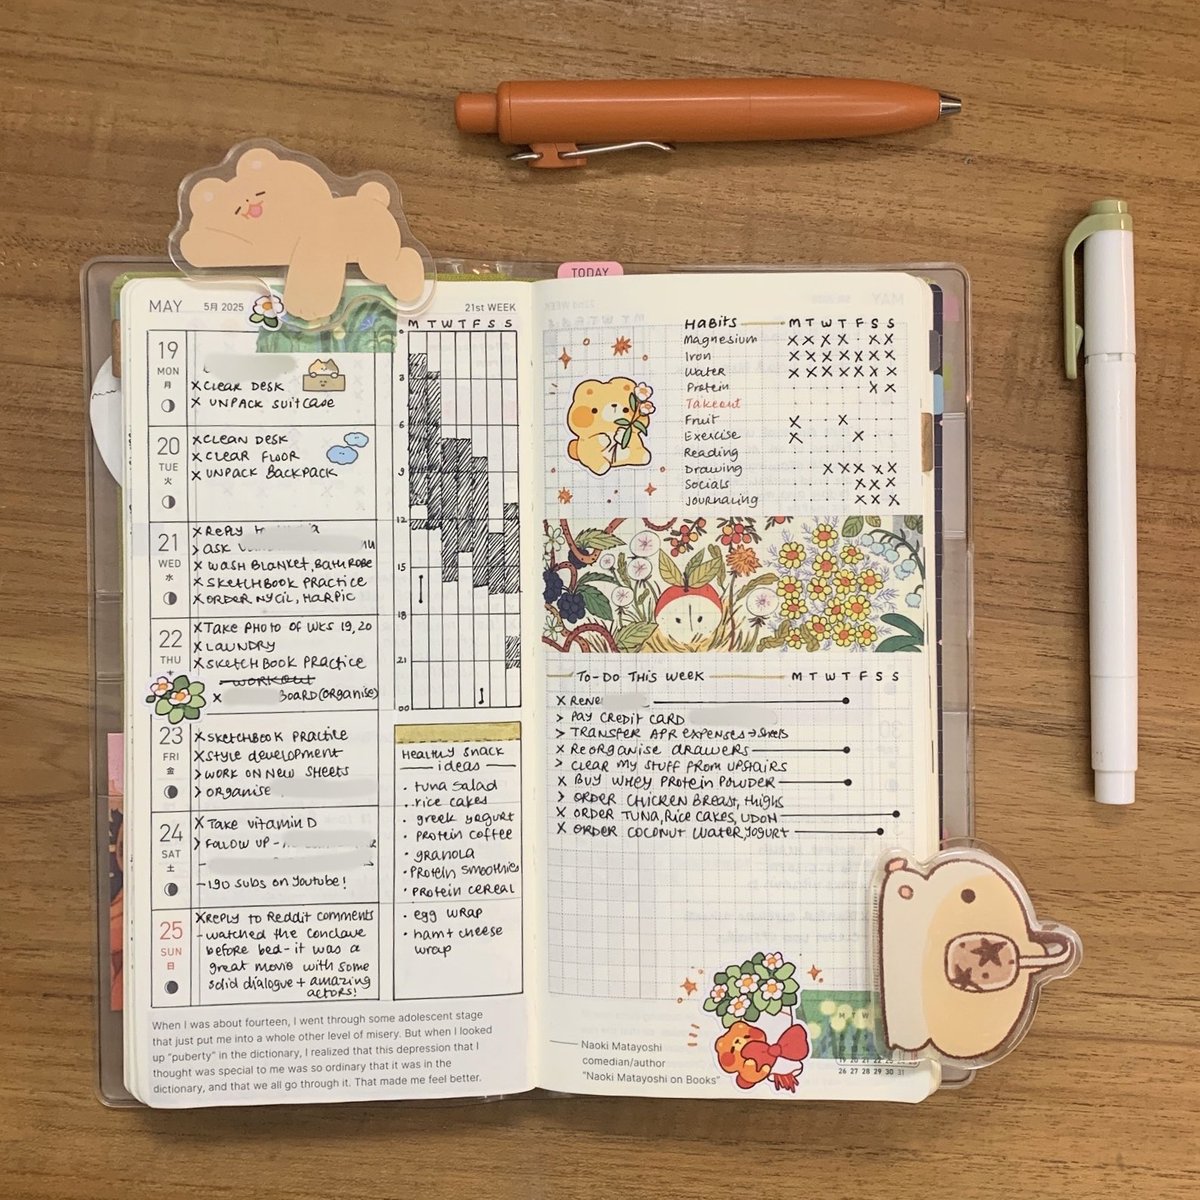 TODAY
MAY 5月 2025 21st WEEK
19
MON
月
X CLEAR DESK
X UNPACK SUITCASE
20
TUE
火
X CLEAN DESK
X CLEAR FLOOR
X UNPACK BACKPACK
21
WED
水
X REPLY
> ASK
X WASH BLANKET, BATHROBE
X SKETCHBOOK PRACTICE
X ORDER NYCIL, HARPIC
22
THU
X TAKE PHOTO OF WKS 19, 20
X LAUNDRY
X SKETCHBOOK PRACTICE
WORKOUT
X BOARD (ORGANISE)
23
FRI
金
X SKETCHBOOK PRACTICE
X STYLE DEVELOPMENT
> WORK ON NEW SHEETS
> ORGANISE
24
SAT
土
X TAKE VITAMIN D
> FOLLOW UP -
- 190 SUBS ON YOUTUBE!
25
SUN
日
X REPLY TO REDDIT COMMENTS
- WATCHED THE CONCLAVE
BEFORE BED - IT WAS A
GREAT MOVIE WITH SOME
SOLID DIALOGUE + AMAZING
ACTORS!
M T W T F S S
0
3
6
9
12
15
18
21
00
HEALTHY SNACK
IDEAS
• TUNA SALAD
• RICE CAKES
• GREEK YOGURT
• PROTEIN COFFEE
• GRANOLA
• PROTEIN SMOOTHIES
• PROTEIN CEREAL
• EGG WRAP
• HAM + CHEESE
WRAP
When I was about fourteen, I went through some adolescent stage
that just put me into a whole other level of misery. But when I looked
up "puberty" in the dictionary, I realized that this depression that I
thought was special to me was so ordinary that it was in the
dictionary, and that we all go through it. That made me feel better.
HABITS M T W T F S S
MAGNESIUM X X X X · X X
IRON X X X X X X X
WATER X X X X X X X
PROTEIN · · · · · X X
TAKEOUT
FRUIT X · · X · · ·
EXERCISE X · · · X · ·
READING
DRAWING · · X X X X X
SOCIALS · · · · X X X
JOURNALING · · · · X X X
TO-DO THIS WEEK M T W T F S S
X RENE
> PAY CREDIT CARD
> TRANSFER APR EXPENSES → SHEETS
X REORGANISE DRAWERS
> CLEAR MY STUFF FROM UPSTAIRS
X BUY WHEY PROTEIN POWDER
> ORDER CHICKEN BREAST, THIGHS
X ORDER TUNA, RICE CAKES, UDON
X ORDER COCONUT WATER, YOGURT
Naoki Matayoshi
comedian/author
"Naoki Matayoshi on Books"
M T W
19 20 21 22 23 24 25
26 27 28 29 30 31